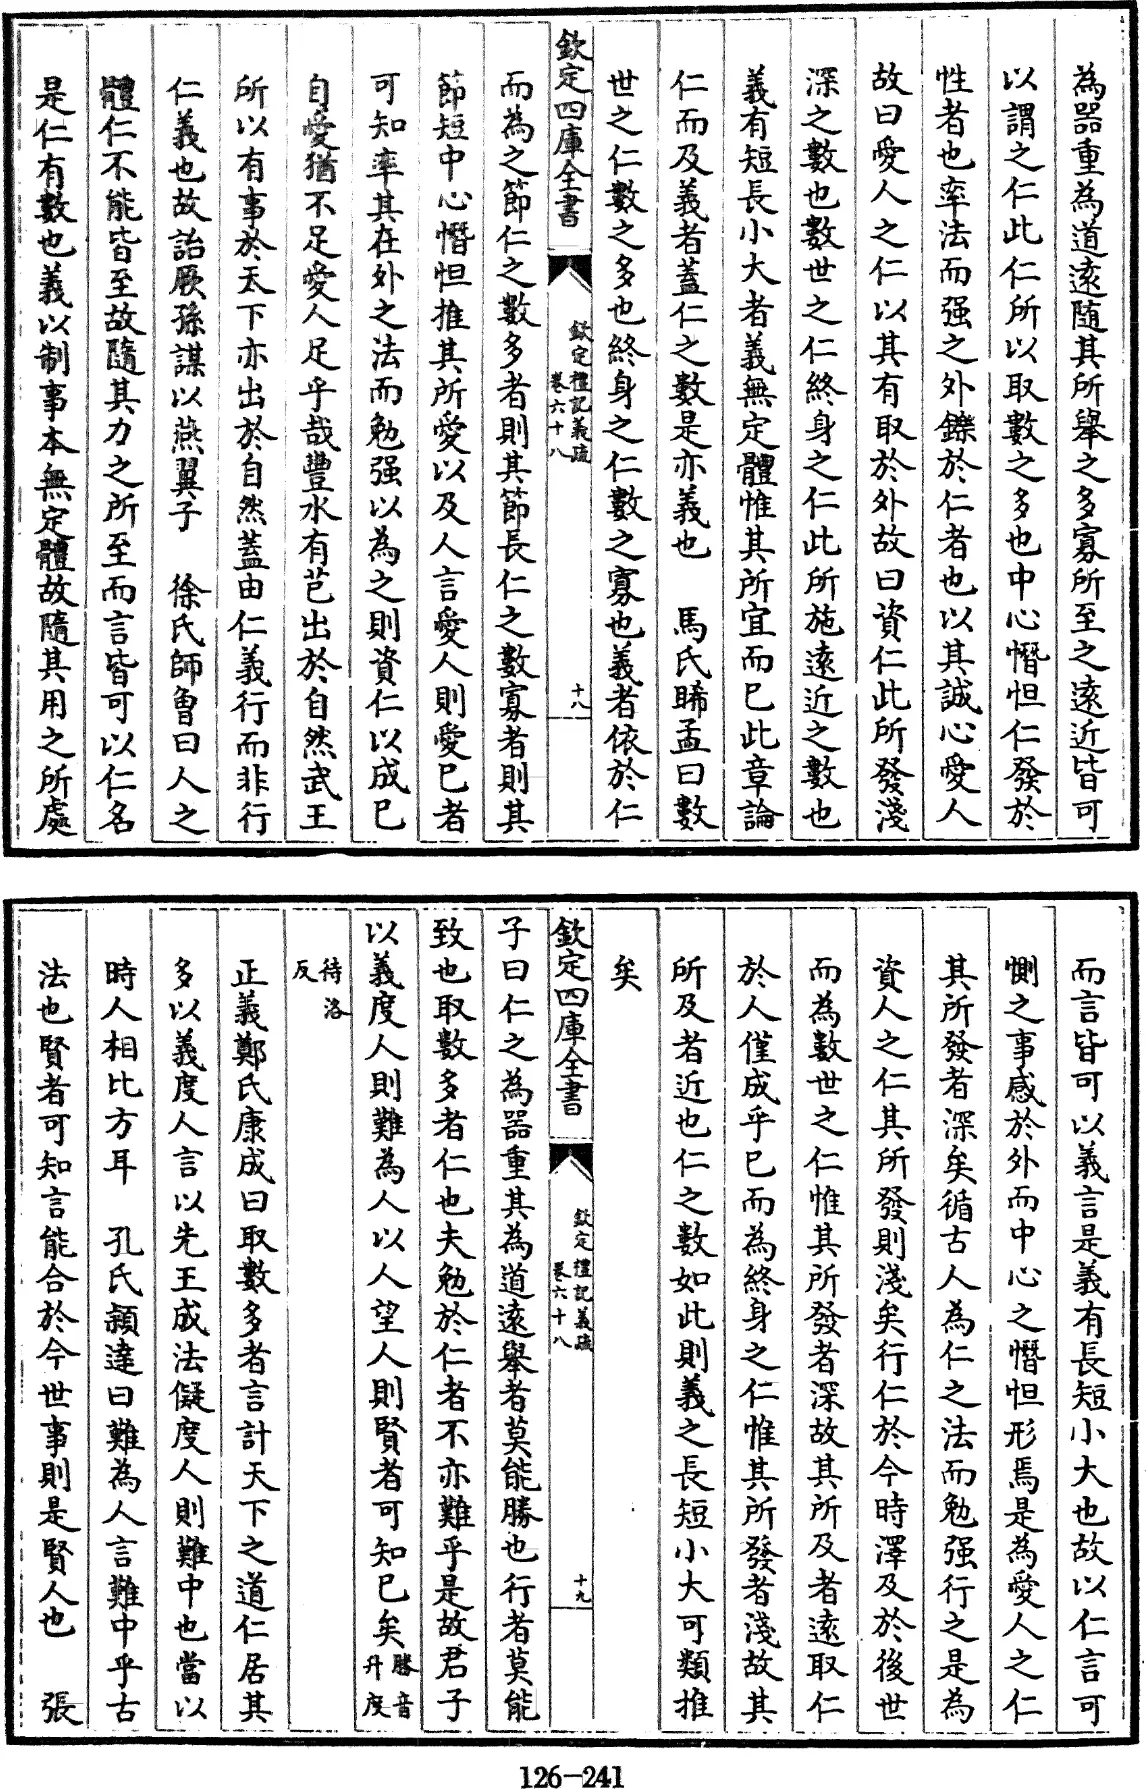 為器重為道遠隨其所舉之多寡所至之遠近皆可
以謂之仁此仁所以取數之多也中心憯怛仁發於
性者也率法而强之外鑠於仁者也以其誠心愛人
故曰愛人之仁以其有取於外故曰資仁此所發淺
深之數也數世之仁終身之仁此所施遠近之數也
義有短長小大者義無定體惟其所宜而已此章論
仁而及義者蓋仁之數是亦義也　馬氏睎孟曰數
世之仁數之多也終身之仁數之寡也義者依於仁
欽定四庫全書
欽定禮記義疏
卷六十八
十八
而為之節仁之數多者則其節長仁之數寡者則其
節短中心憯怛推其所愛以及人言愛人則愛已者
可知率其在外之法而勉强以為之則資仁以成已
自愛猶不足愛人足乎哉豐水有芑出於自然武王
所以有事於天下亦出於自然蓋由仁義行而非行
仁義也故詒厥孫謀以燕翼子　徐氏師曾曰人之
體仁不能皆至故隨其力之所至而言皆可以仁名
是仁有數也義以制事本無定體故隨其用之所處
而言皆可以義言是義有長短小大也故以仁言可
惻之事感於外而中心之憯怛形焉是為愛人之仁
其所發者深矣循古人為仁之法而勉强行之是為
資人之仁其所發則淺矣行仁於今時澤及於後世
而為數世之仁惟其所發者深故其所及者遠取仁
於人僅成乎已而為終身之仁惟其所發者淺故其
所及者近也仁之數如此則義之長短小大可類推
矣
欽定四庫全書
欽定禮記義疏
卷六十八
十九
子曰仁之為器重其為道遠舉者莫能勝也行者莫能
致也取數多者仁也夫勉於仁者不亦難乎是故君子
以義度人則難為人以人望人則賢者可知已矣勝音
升度
待洛
反
正義鄭氏康成曰取數多者言計天下之道仁居其
多以義度人言以先王成法儗度人則難中也當以
時人相比方耳　孔氏穎達曰難為人言難中乎古
法也賢者可知言能合於今世事則是賢人也　張
126-241